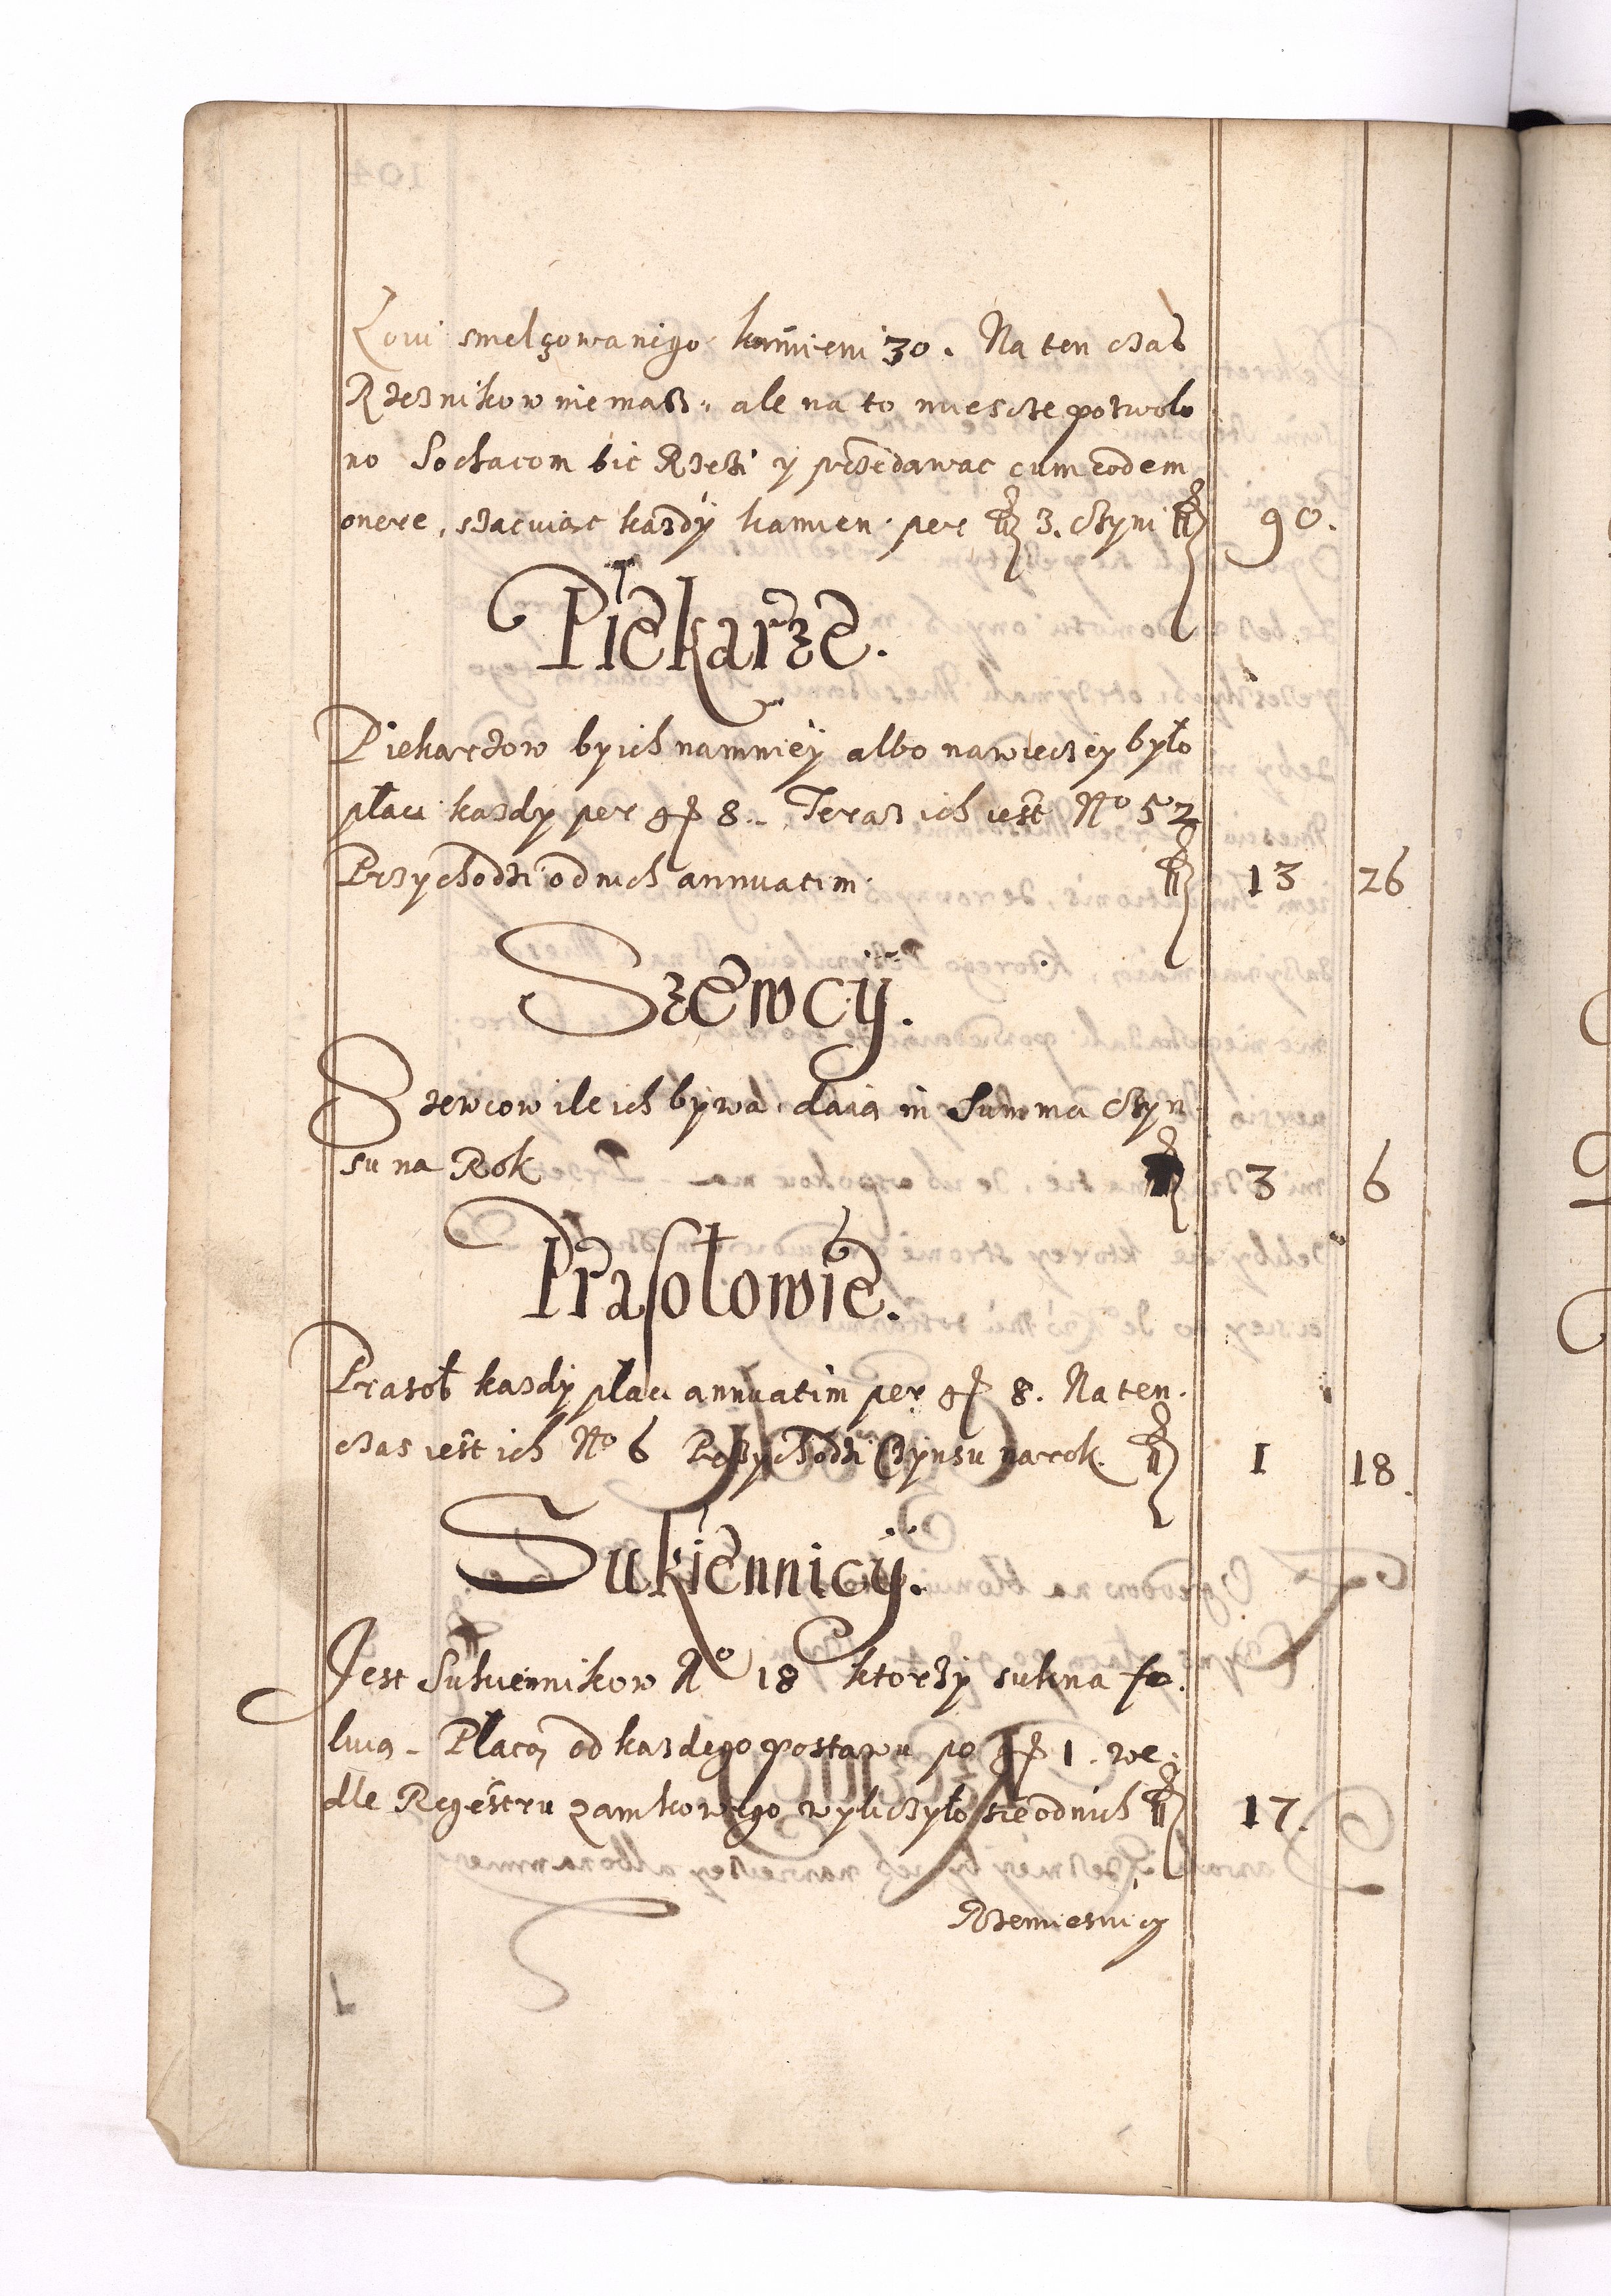 Łoiu smelçowanego kamieni 30. Na ten czas
Rzeznikow niemasz, ale na to miescze pozwolo
no Sochacom bić Rzezi y przedawac cum eodem
onere, szacuiąc kazdy kamien per fl 3. czyni fl 90.
Piekarze.
Piekarzow by ich namniey albo nawieczey było
płaci kazdy per gr 8. Teraz ich iest No 52
Przychodzi od nich annuatim fl 13 26
Szewcy.
Szewcow ile ich bywa, daią in Summa Czyn
su na Rok fl 3 6
Prasołowie.
Prasoł kazdy płaci annuatim per gr 8. Na ten
czas iest ich No 6 Przychodzi Czynsu na rok. fl 1 18.
Sukiennicy.
Jest Sukiennikow No 18 ktorzy sukna fo
luią. Płacą od kazdego postawu po gr 1. we
dle Regestru zamkowego wyliczyło sie od nich fl 17.
Rzemiesnicy